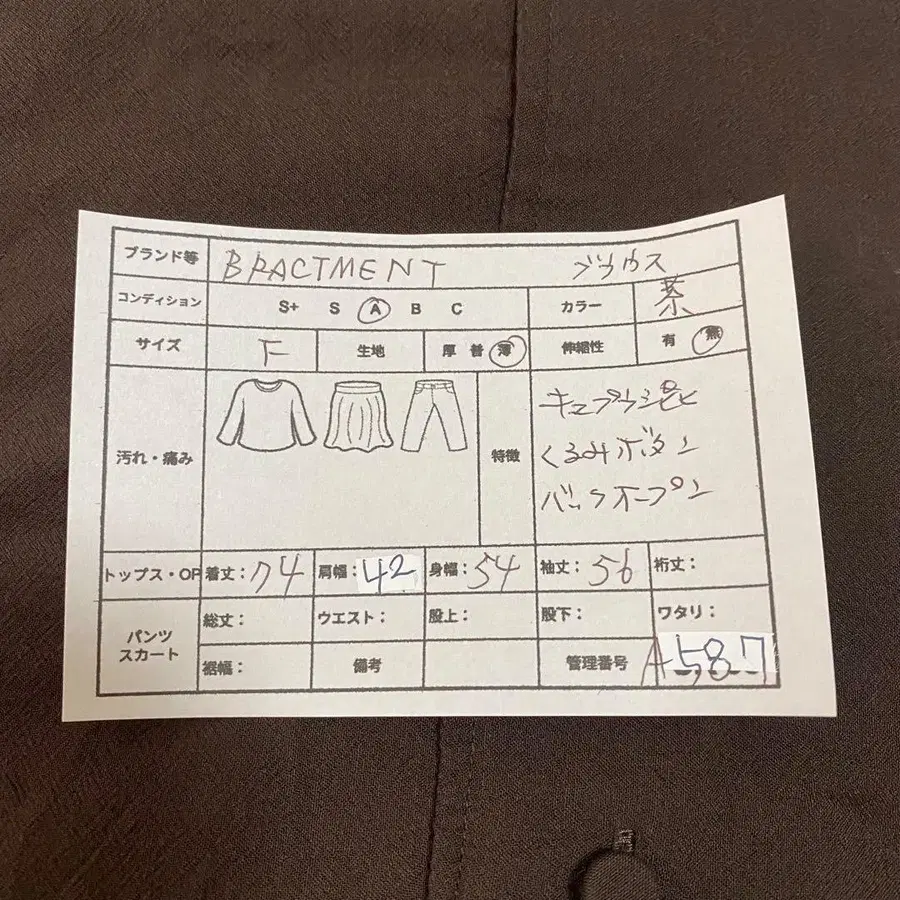 ブランド等 BRACTMENT ブラウス
コンディション S+ S A B C カラー 茶
サイズ F 生地 厚 普 薄 伸縮性 有 無
汚れ・痛み 特徴 キュプラ混ヒ
くるみボタン
バックオープン
トップス・OP 着丈：74 肩幅：42 身幅：54 袖丈：56 裄丈：
パンツ スカート 総丈： ウエスト： 股上： 股下： ワタリ：
裾幅： 備考 管理番号 A-587